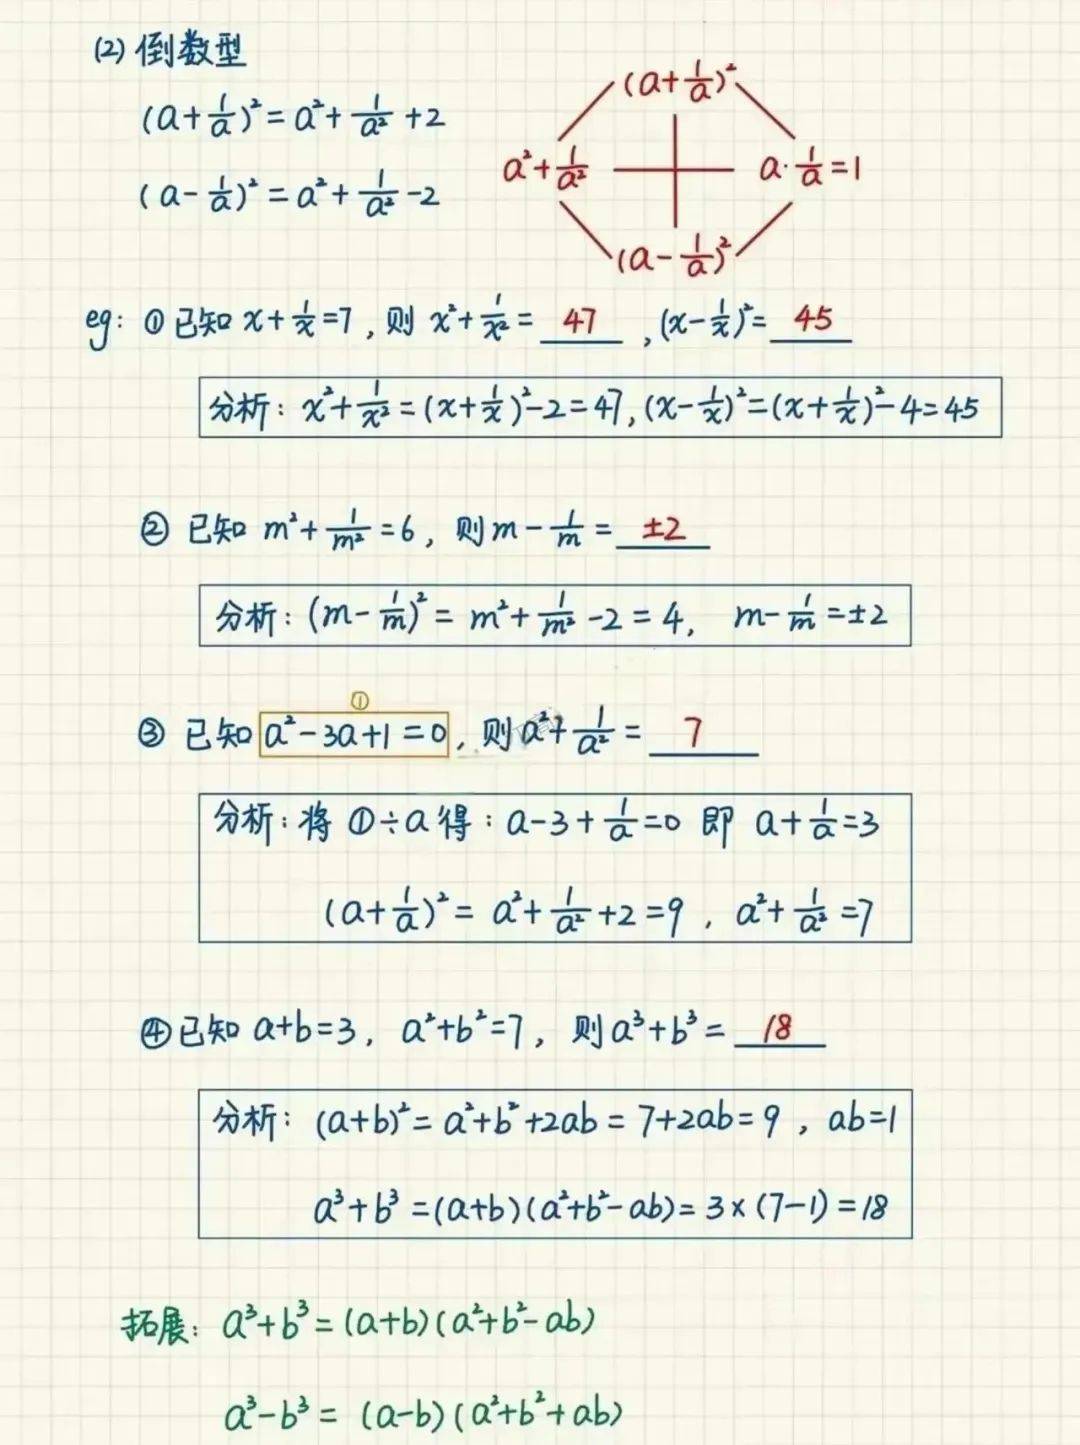 (2) 倒数型
(a+1/a)²=a²+1/a²+2
(a-1/a)²=a²+1/a²-2
(a+1/a)²
a²+1/a²
a·1/a=1
(a-1/a)²
eg: ①已知 x+1/x=7, 则 x²+1/x²= 47 , (x-1/x)²= 45
分析: x²+1/x²=(x+1/x)²-2=47, (x-1/x)²=(x+1/x)²-4=45
② 已知 m²+1/m²=6, 则 m-1/m= ±2
分析: (m-1/m)²= m²+1/m²-2=4, m-1/m=±2
①
③ 已知 a²-3a+1=0, 则 a²+1/a²= 7
分析: 将 ①÷a 得: a-3+1/a=0 即 a+1/a=3
(a+1/a)²= a²+1/a²+2=9, a²+1/a²=7
④已知 a+b=3, a²+b²=7, 则 a³+b³= 18
分析: (a+b)²=a²+b²+2ab=7+2ab=9, ab=1
a³+b³=(a+b)(a²+b²-ab)=3×(7-1)=18
拓展: a³+b³=(a+b)(a²+b²-ab)
a³-b³= (a-b)(a²+b²+ab)